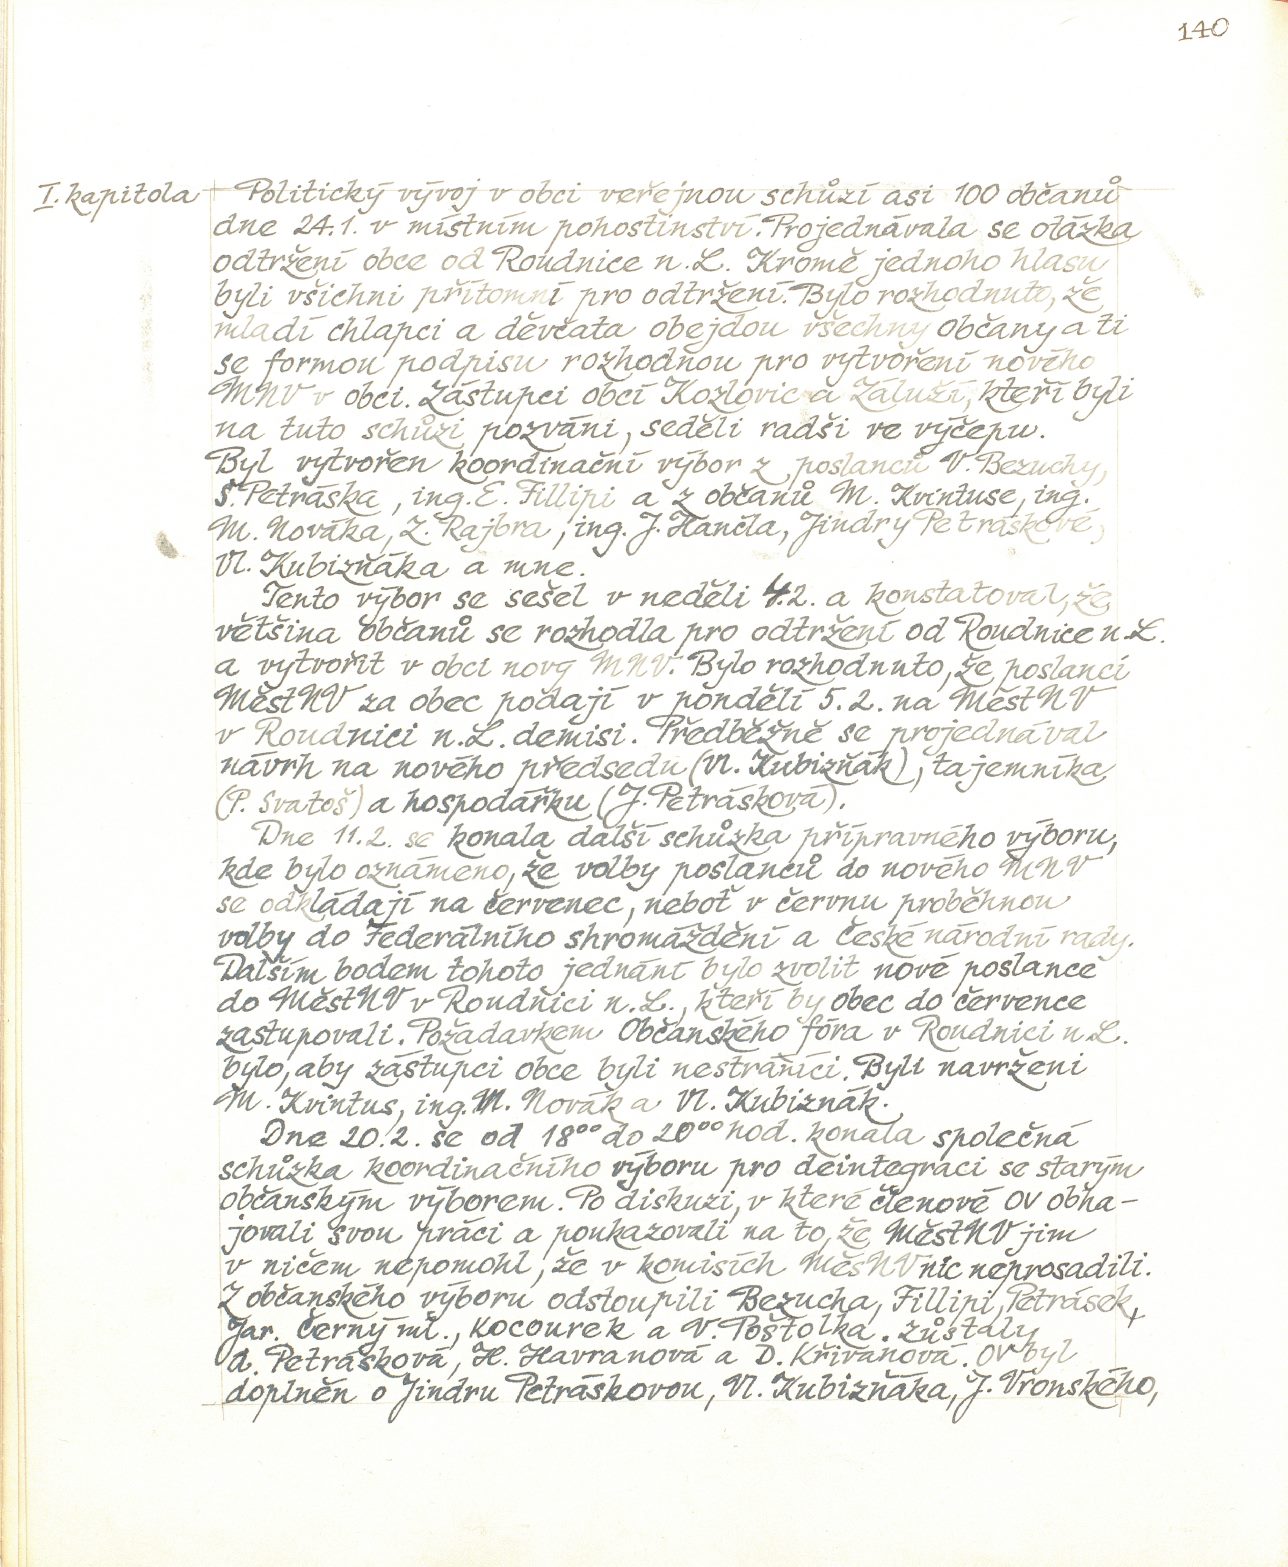 140
I. kapitola
Politický vývoj v obci veřejnou schůzí asi 100 občanů
dne 24.1. v místním pohostinství. Projednávala se otázka
odtržení obce od Roudnice n.L. Kromě jednoho hlasu
byli všichni přítomní pro odtržení. Bylo rozhodnuto, že
mladí chlapci a děvčata obejdou všechny občany a ti
se formou podpisu rozhodnou pro vytvoření nového
MNV v obci. Zástupci obcí Kozlovic a Záluží, kteří byli
na tuto schůzi pozváni, seděli radši ve výčepu.
Byl vytvořen koordinační výbor z poslanců V. Bezuchy,
S. Petráska, ing. E. Fillipi a z občanů M. Kvintuse, ing.
M. Nováka, Z. Rajbra, ing. J. Hančla, Jindry Petráskové,
Vl. Kubizňáka a mne.
Tento výbor se sešel v neděli 4.2. a konstatoval, že
většina občanů se rozhodla pro odtržení od Roudnice n.L.
a vytvořit v obci nový MNV. Bylo rozhodnuto, že poslanci
MěstNV za obec podají v pondělí 5.2. na MěstNV
v Roudnici n.L. demisi. Předběžně se projednával
návrh na nového předsedu (Vl. Kubizňák), tajemníka
(P. Svatoš) a hospodářku (J. Petrásková).
Dne 11.2. se konala další schůzka přípravného výboru,
kde bylo oznámeno, že volby poslanců do nového MNV
se odkládají na červenec, neboť v červnu proběhnou
volby do Federálního shromáždění a České národní rady.
Dalším bodem tohoto jednání bylo zvolit nové poslance
do MěstNV v Roudnici n.L., kteří by obec do července
zastupovali. Požadavkem Občanského fóra v Roudnici n.L.
bylo, aby zástupci obce byli nestraníci. Byli navrženi
M. Kvintus, ing. M. Novák a Vl. Kubiznák.
Dne 20.2. se od 18°° do 20°° hod. konala společná
schůzka koordinačního výboru pro deintegraci se starým
občanským výborem. Po diskuzi, v které členové OV obha-
jovali svou práci a poukazovali na to, že MěstNV jim
v ničem nepomohl, že v komisích MěsNV nic neprosadili.
Z občanského výboru odstoupili Bezucha, Fillipi, Petrásek,
Jar. Černý ml., Kocourek a V. Poštolka. Zůstaly
A. Petrásková, H. Havranová a D. Křivanová. OV byl
doplněn o Jindru Petráskovou, Vl. Kubizňáka, J. Vronského,